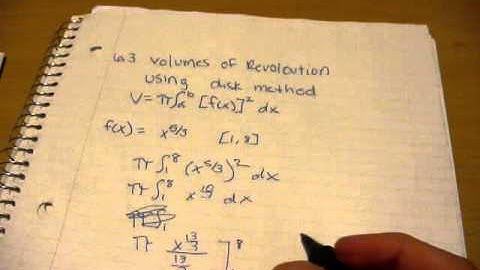 6.3 Volumes of Revoloution
using disk method
V = π∫ₐᵇ [f(x)]² dx
f(x) = x^5/3 [1, 8]
π ∫₁⁸ (x^5/3)² dx
π ∫₁⁸ x^10/3 dx
π x^13/3 / 13/3 ]⁸